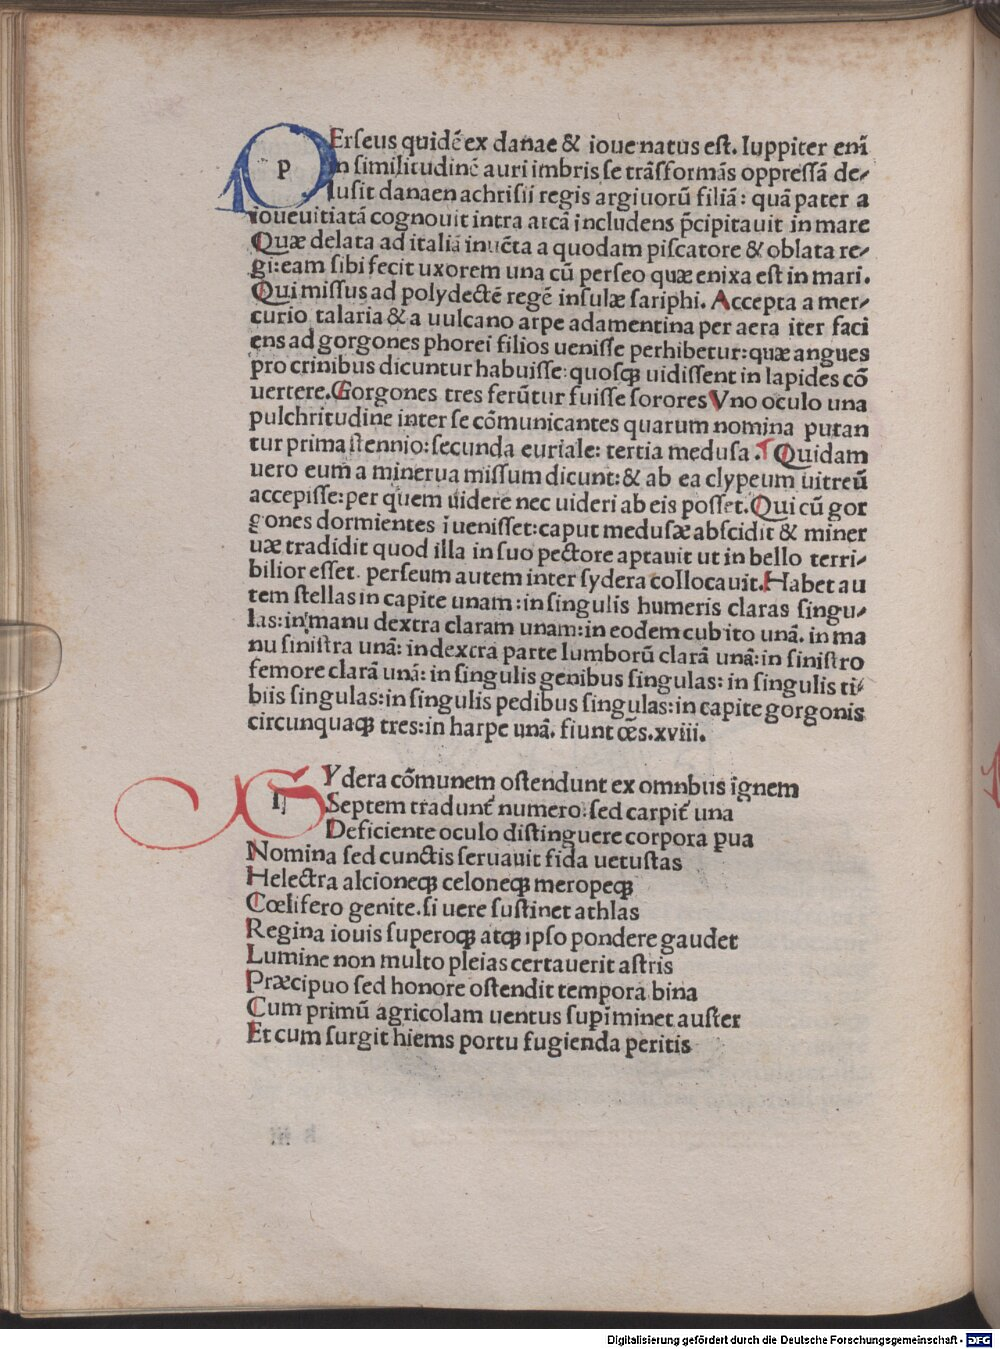 PErſeus quidē ex danae & ioue natus eſt. Iuppiter enī
in ſimilitudinē auri imbris ſe trāſformās oppreſſā de-
luſit danaen achriſii regis argiuorū filiā: quā pater a
ioue uitiatā cognouit intra arcā includens p̄cipitauit in mare
Quæ delata ad italiā inuēta a quodam piſcatore & oblata re-
gi: eam ſibi fecit uxorem una cū perſeo quæ enixa eſt in mari.
Qui miſſus ad polydectē regē inſulæ ſariphi. Accepta a mer-
curio talaria & a uulcano arpe adamentina per aera iter faci
ens ad gorgones phorei filios ueniſſe perhibetur: quæ angues
pro crinibus dicuntur habuiſſe: quoſqꝫ uidiſſent in lapides cō
uertere. Gorgones tres ferūtur fuiſſe ſorores Vno oculo una
pulchritudine inter ſe cōmunicantes quarum nomina putan
tur prima ſtennio: ſecunda euriale: tertia meduſa. Quidam
uero eum a minerua miſſum dicunt: & ab ea clypeum uitreū
accepiſſe: per quem uidere nec uideri ab eis poſſet. Qui cū gor
gones dormientes īueniſſet: caput meduſæ abſcidit & miner
uæ tradidit quod illa in ſuo pectore aptauit ut in bello terri-
bilior eſſet. perſeum autem inter ſydera collocauit. Habet au
tem ſtellas in capite unam: in ſingulis humeris claras ſingu-
las: in manu dextra claram unam: in eodem cubito unā. in ma
nu ſiniſtra unā: in dextra parte lumborū clarā unā: in ſiniſtro
femore clarā unā: in ſingulis genibus ſingulas: in ſingulis ti-
biis ſingulas: in ſingulis pedibus ſingulas: in capite gorgonis
circunquaqꝫ tres: in harpe unā. fiunt oēs. xviii.
SYdera cōmunem oſtendunt ex omnbus ignem
Septem tradunt̄ numero: ſed carpit̄ una
Deficiente oculo diſtinguere corpora ꝑua
Nomina ſed cunctis ſeruauit fida uetuſtas
Helectra alcioneqꝫ celoneqꝫ meropeqꝫ
Cœlifero genite. ſi uere ſuſtinet athlas
Regina iouis ſuperoqꝫ atqꝫ ipſo pondere gaudet
Lumine non multo pleias certauerit aſtris
Præcipuo ſed honore oſtendit tempora bina
Cum primū agricolam uentus ſupīminet auſter
Et cum ſurgit hiems portu fugienda peritis
Digitalisierung gefördert durch die Deutsche Forschungsgemeinschaft - DFG